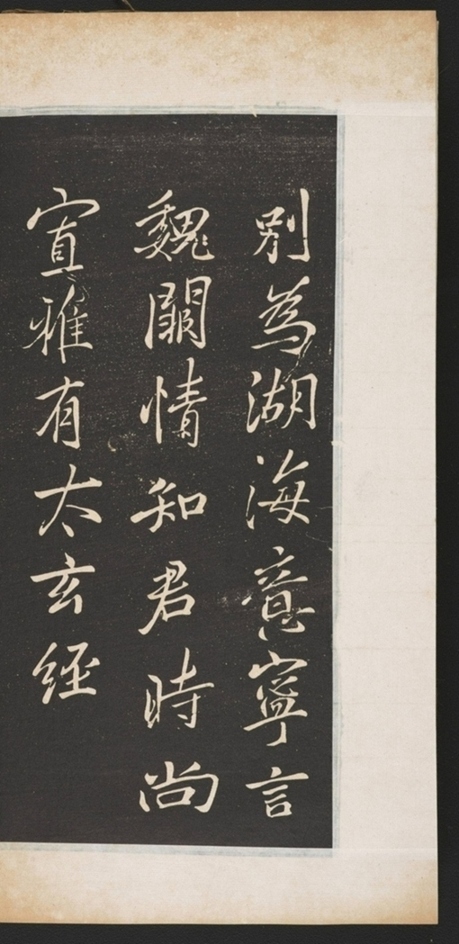 別為湖海意寧言
魏闕情知君時尚
宣雅有太玄経